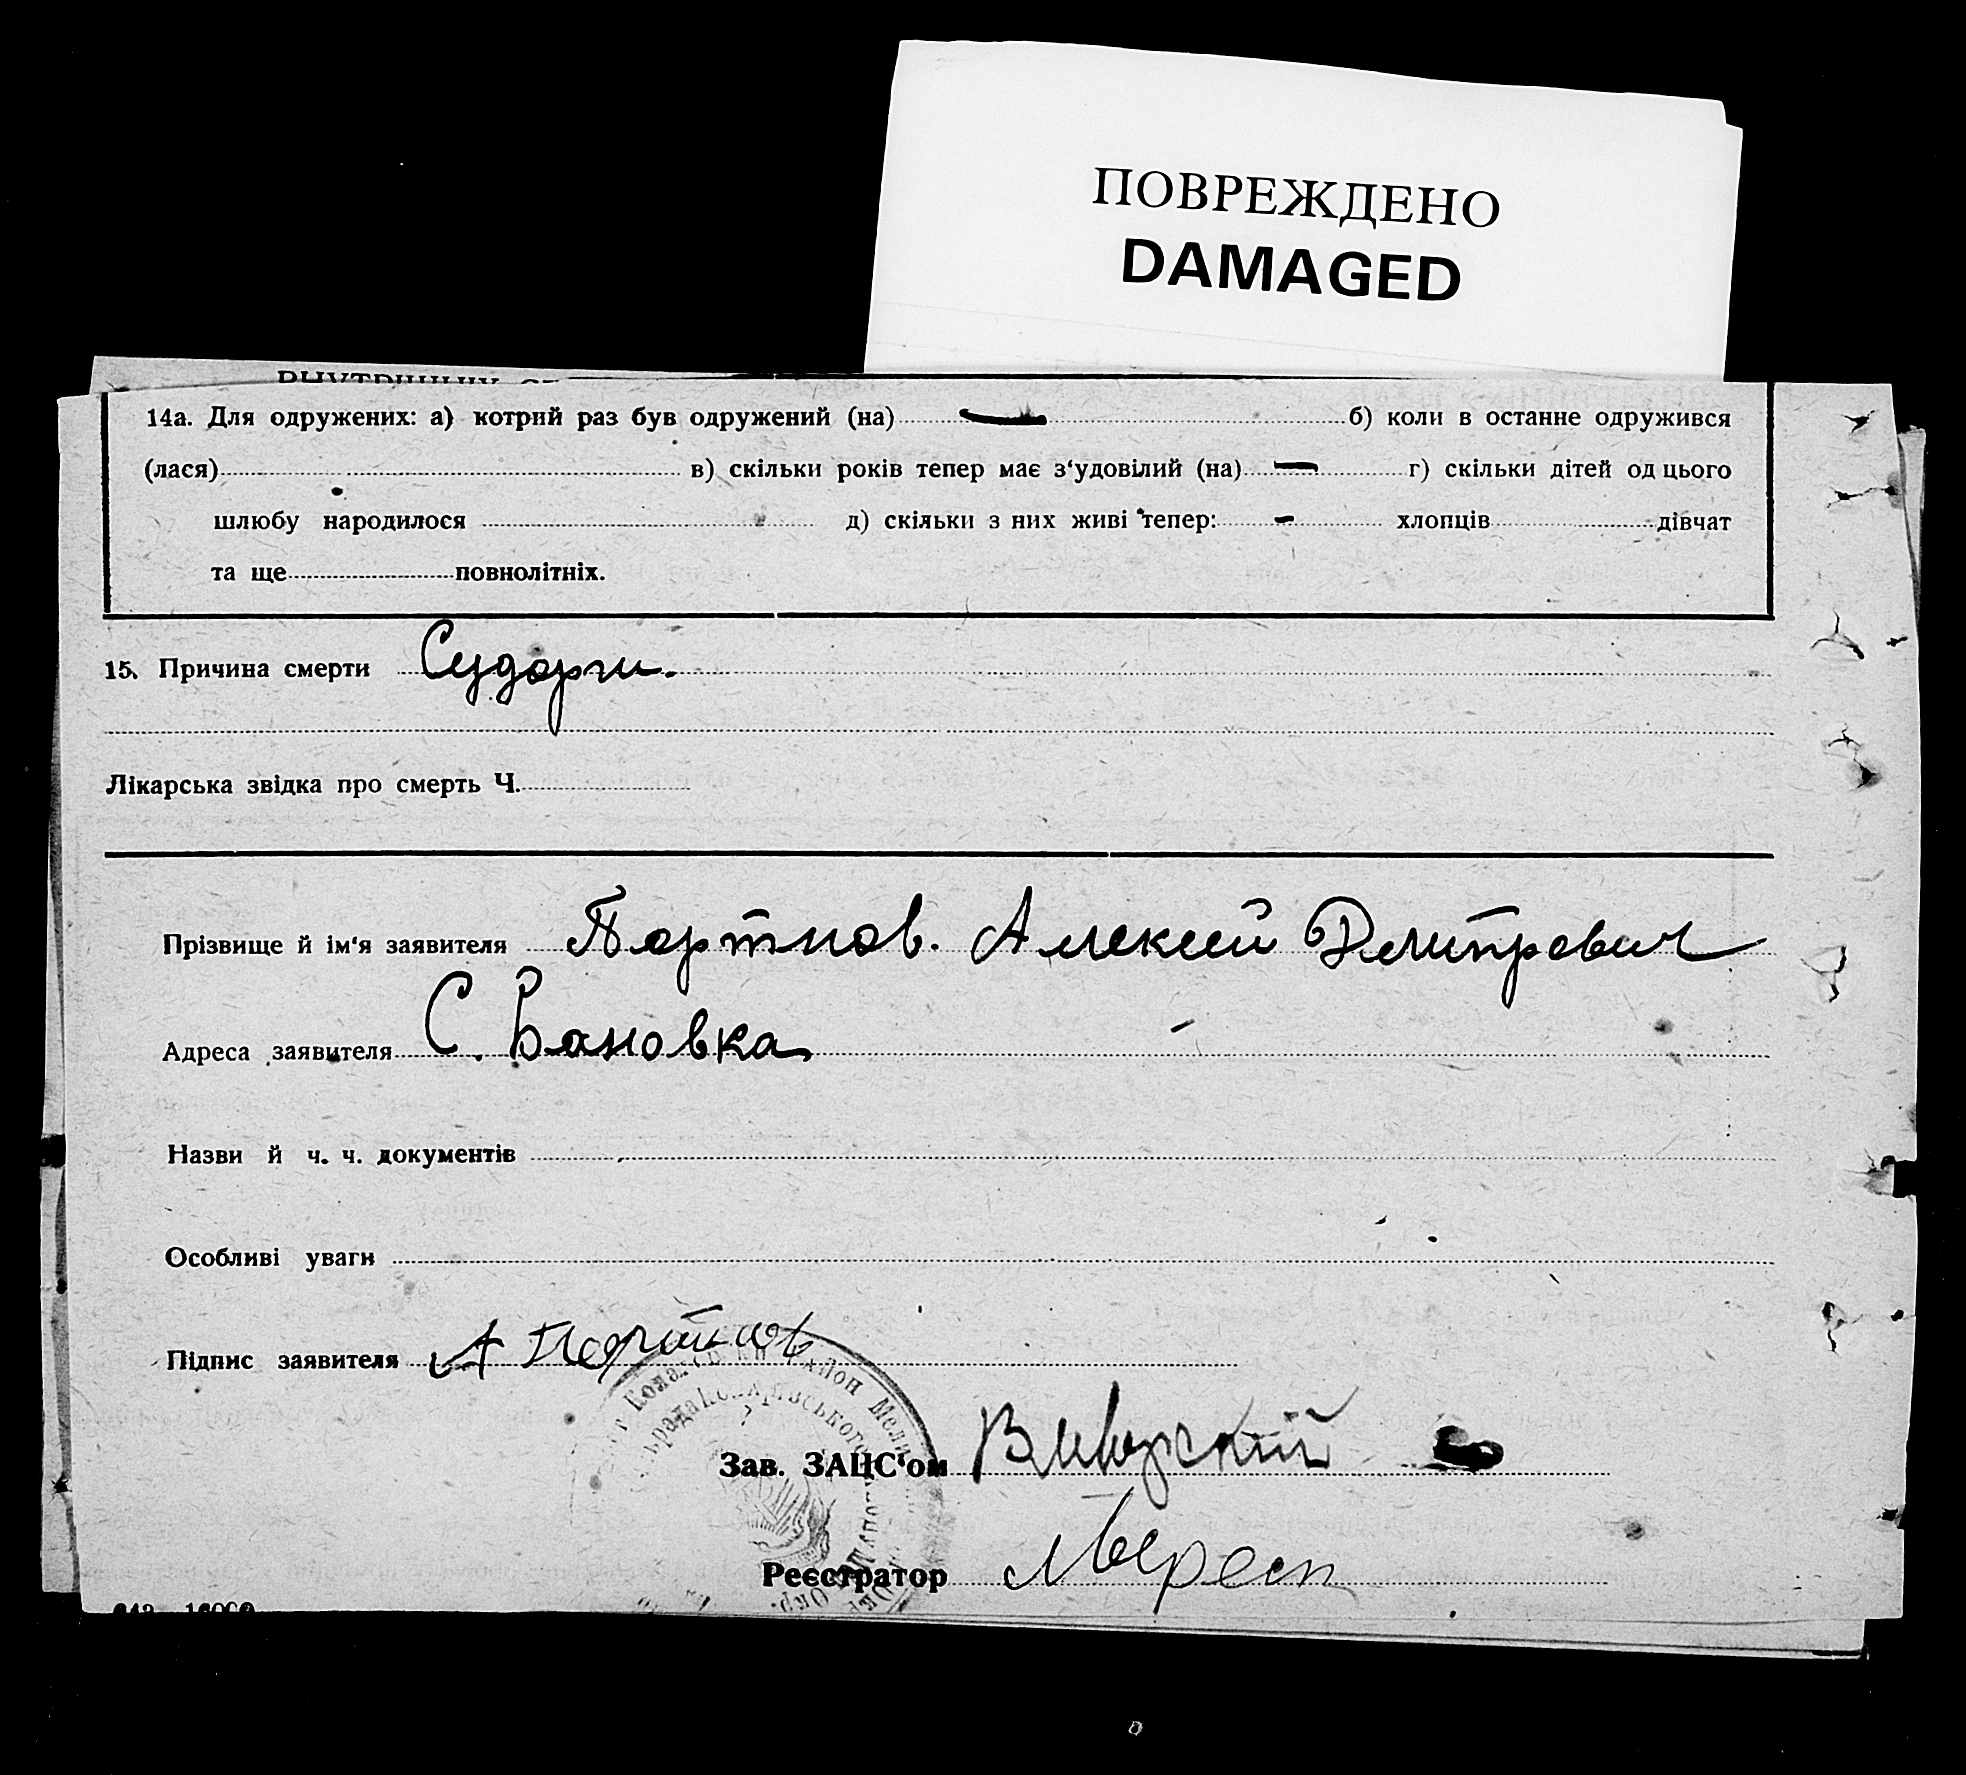 ПОВРЕЖДЕНО
DAMAGED
14а. Для одружених: а) котрий раз був одружений (на) — б) коли в останне одружився
(лася) в) скільки років тепер має з‘удовілий (на) — г) скільки дітей од цього
шлюбу народилося д) скільки з них живі тепер: - хлопців дівчат
та ще повнолітніх.
15. Причина смерти Судорги.
Лікарська звідка про смерть Ч.
Прізвище й ім‘я заявителя Портнов. Алексей Дмитрович
Адреса заявителя С. Вановка
Назви й ч. ч. документів
Особливі уваги
Підпис заявителя А Портнов
Зав. ЗАЦС‘ом
Реєстратор